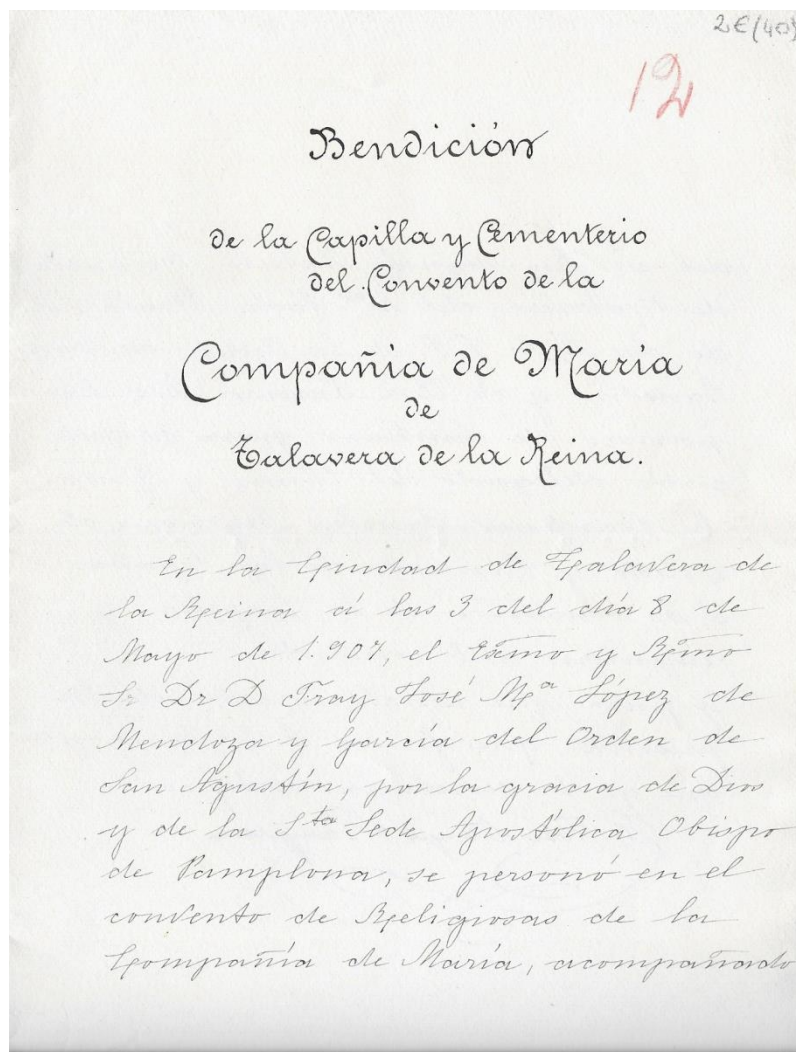 2E(40)
12
Bendición
de la Capilla y Cementerio
del Convento de la
Compañia de María
de
Talavera de la Reina.
En la Ciudad de Talavera de
la Reina á las 3 del día 8 de
Mayo de 1.907, el Exmo y Rmo
Sr Dr D Fray José Mª López de
Mendoza y García del Orden de
San Agustín, por la gracia de Dios
y de la Sta Sede Apostólica Obispo
de Pamplona, se personó en el
convento de Religiosas de la
Compañía de María, acompañado